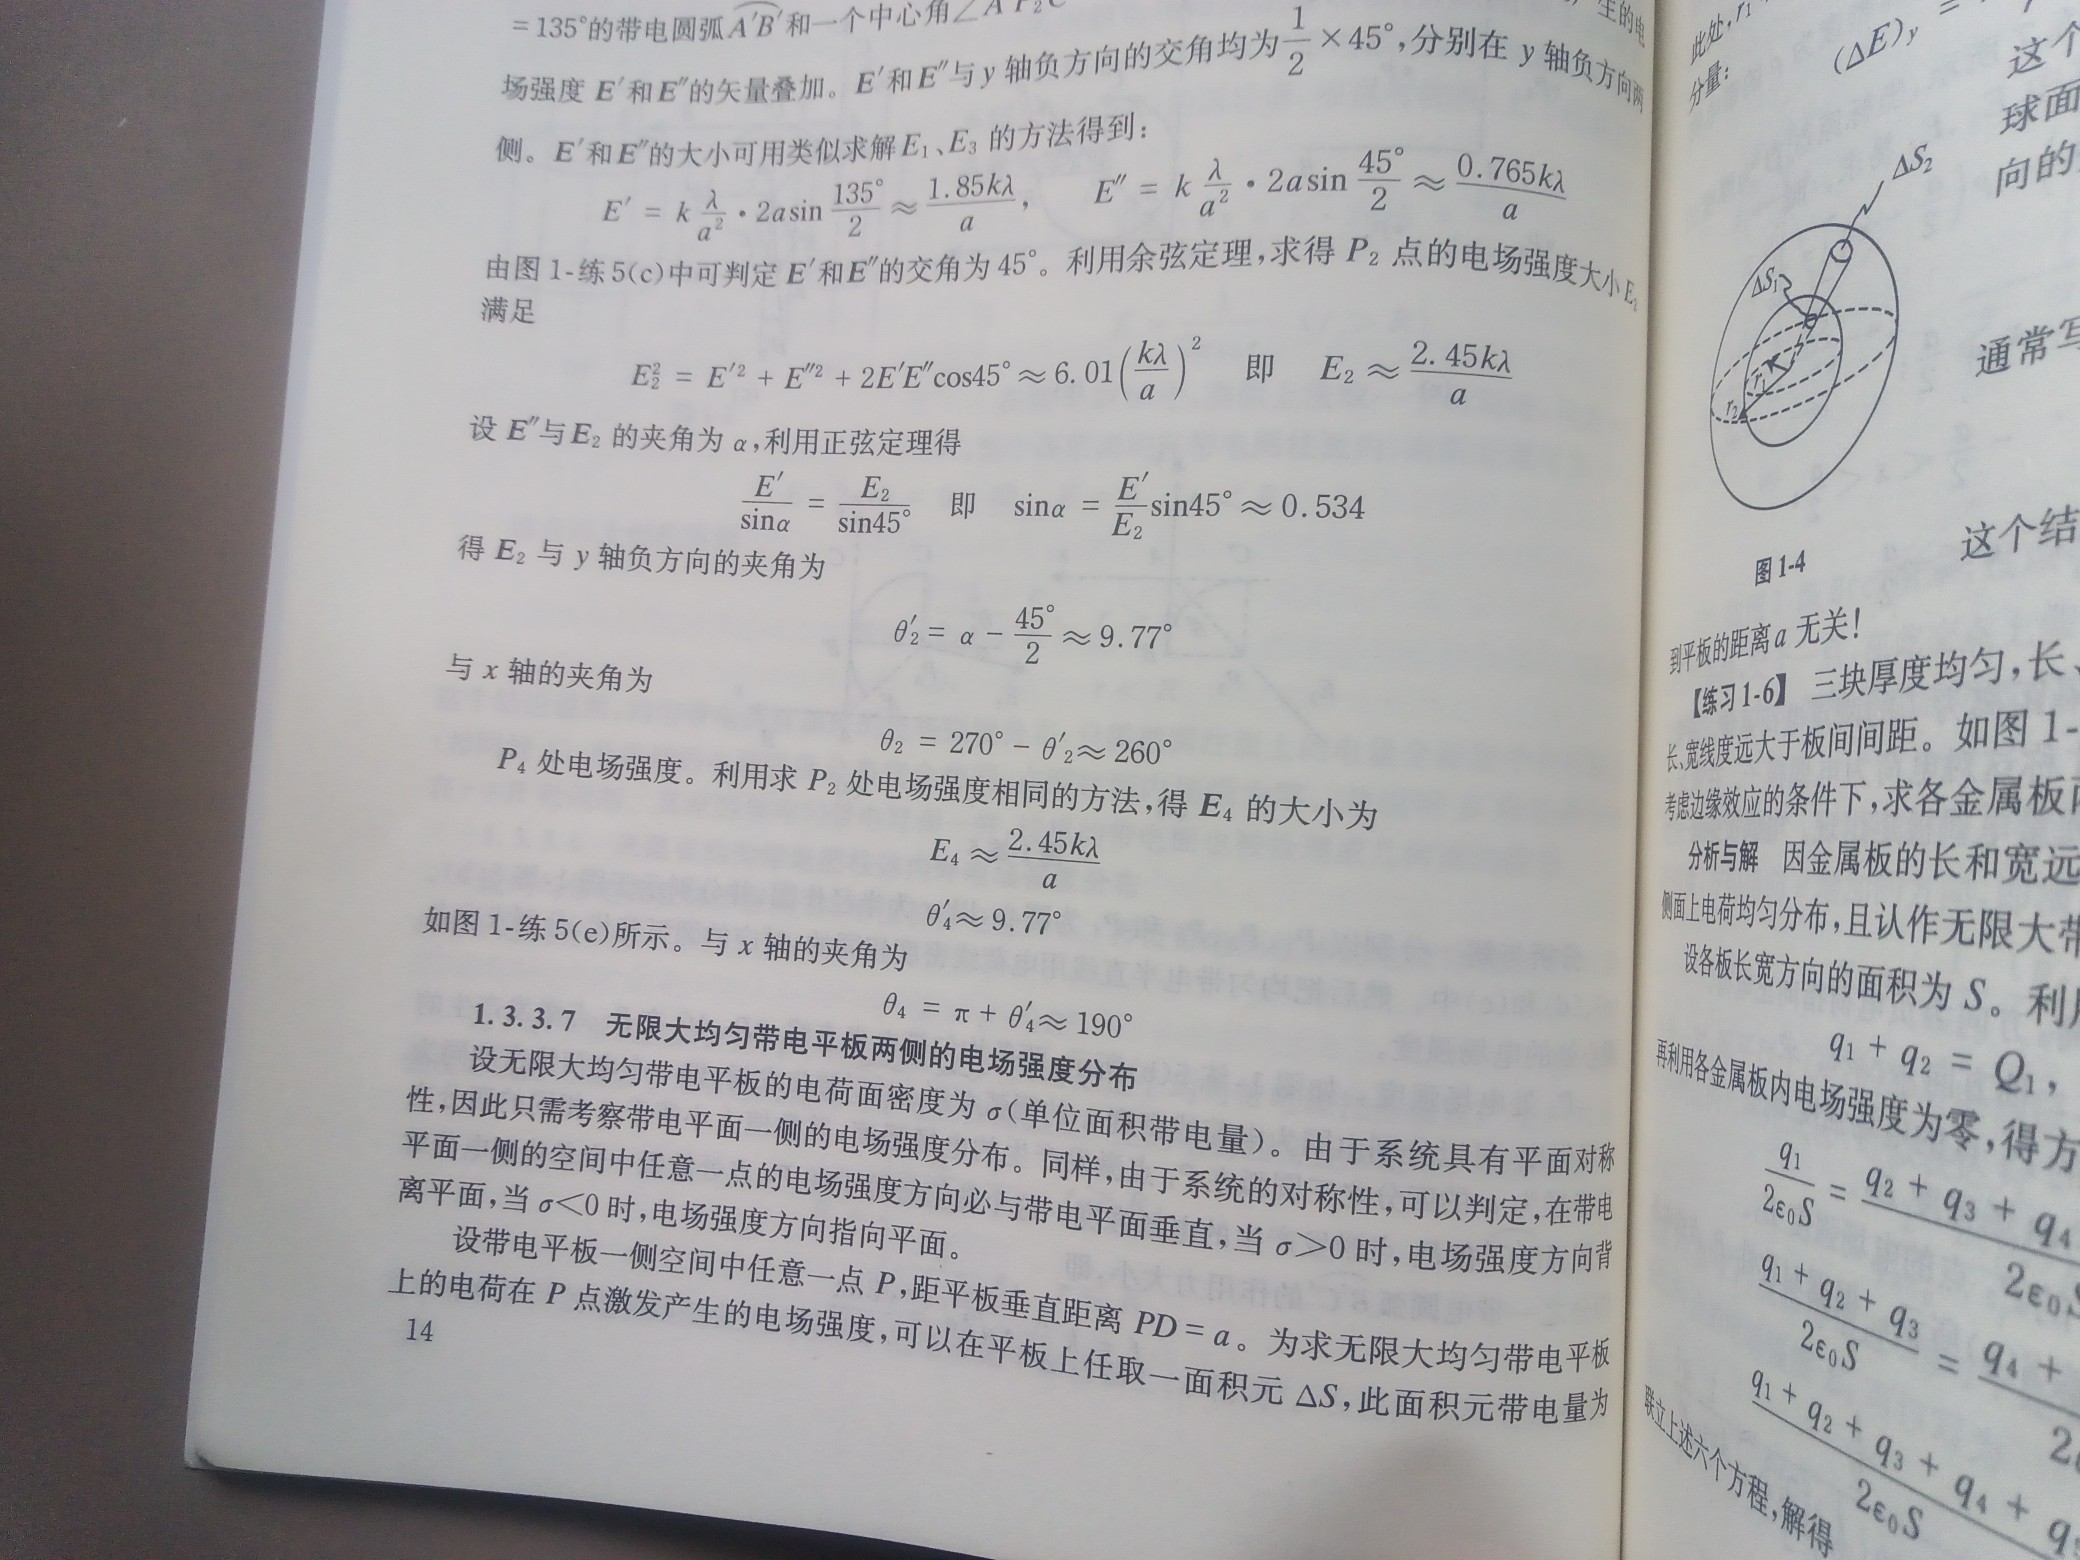 =135°的带电圆弧A′B′和一个中心角∠A′P₂C′
场强度 E′和E″的矢量叠加。E′和E″与y 轴负方向的交角均为1/2×45°,分别在 y 轴负方向两
侧。E′和E″的大小可用类似求解E₁、E₃ 的方法得到:
E′ = k λ/a² · 2asin 135°/2 ≈ 1.85kλ/a, E″ = k λ/a² · 2asin 45°/2 ≈ 0.765kλ/a
由图 1-练 5(c)中可判定 E′和E″的交角为 45°。利用余弦定理,求得 P₂ 点的电场强度大小E₂
满足
E₂² = E′² + E″² + 2E′E″cos45° ≈ 6.01(kλ/a)² 即 E₂ ≈ 2.45kλ/a
设 E″与E₂ 的夹角为 α,利用正弦定理得
E′/sinα = E₂/sin45° 即 sinα = E′/E₂ sin45° ≈ 0.534
得 E₂ 与 y 轴负方向的夹角为
θ′₂ = α − 45°/2 ≈ 9.77°
与 x 轴的夹角为
θ₂ = 270° − θ′₂ ≈ 260°
P₄ 处电场强度。利用求 P₂ 处电场强度相同的方法,得 E₄ 的大小为
E₄ ≈ 2.45kλ/a
θ′₄ ≈ 9.77°
如图 1-练 5(e)所示。与 x 轴的夹角为
θ₄ = π + θ′₄ ≈ 190°
1.3.3.7 无限大均匀带电平板两侧的电场强度分布
设无限大均匀带电平板的电荷面密度为 σ(单位面积带电量)。由于系统具有平面对称
性,因此只需考察带电平面一侧的电场强度分布。同样,由于系统的对称性,可以判定,在带电
平面一侧的空间中任意一点的电场强度方向必与带电平面垂直,当 σ>0 时,电场强度方向背
离平面,当 σ<0 时,电场强度方向指向平面。
设带电平板一侧空间中任意一点 P,距平板垂直距离 PD = a。为求无限大均匀带电平板
上的电荷在 P 点激发产生的电场强度,可以在平板上任取一面积元 ΔS,此面积元带电量为
14
此处,r₁
分量:
(ΔE)y =
这个
球面
向的
ΔS₂
ΔS₁
r₁
r₂
通常写
这个结
图 1-4
到平板的距离 a 无关!
【练习 1-6】 三块厚度均匀,长、
长、宽线度远大于板间间距。如图 1-
考虑边缘效应的条件下,求各金属板
分析与解 因金属板的长和宽远
侧面上电荷均匀分布,且认作无限大带
设各板长宽方向的面积为 S。利用
q₁ + q₂ = Q₁,
再利用各金属板内电场强度为零,得方
q₁/2ε₀S = q₂ + q₃ + q₄/2ε₀S
q₁ + q₂ + q₃/2ε₀S = q₄ +
q₁ + q₂ + q₃ + q₄ + q₅/2ε₀S
联立上述六个方程,解得